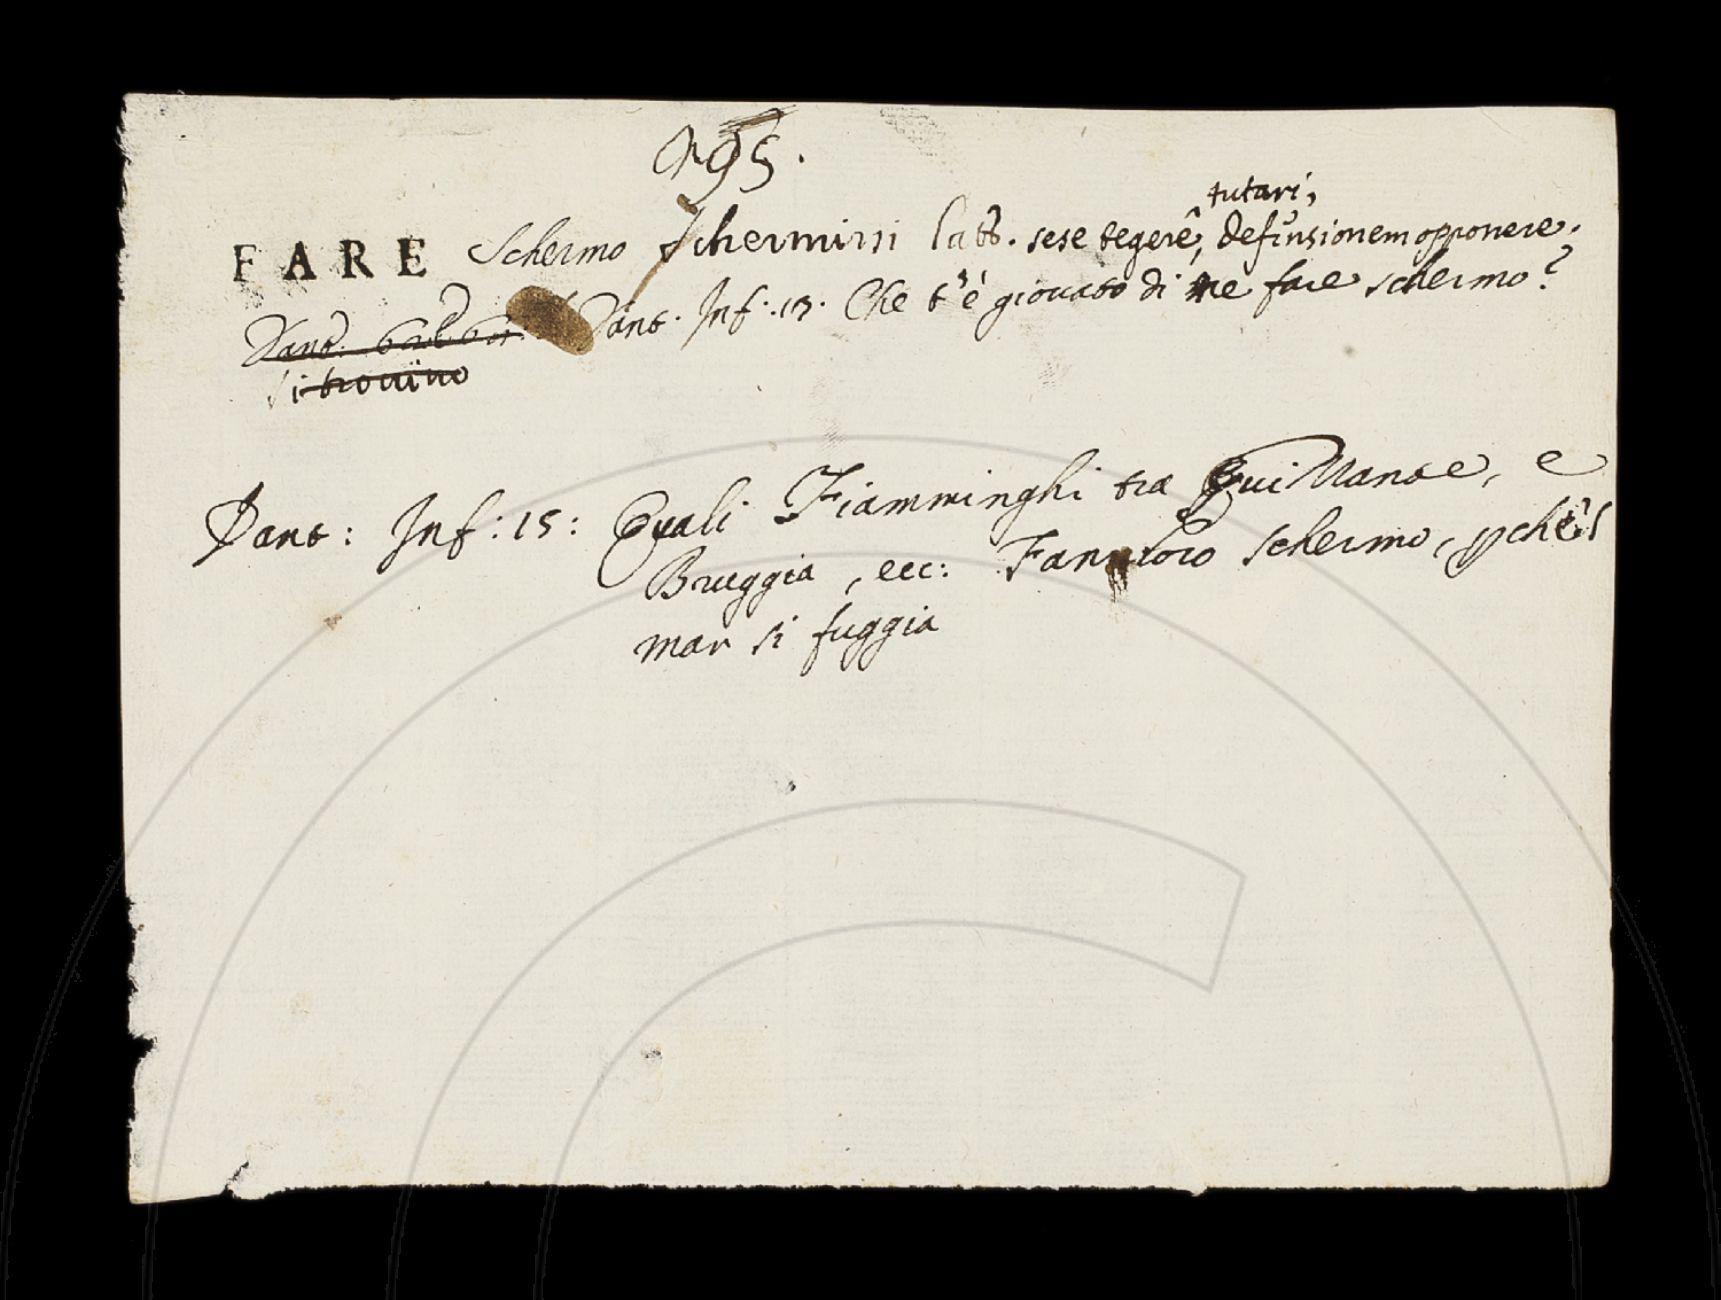 195.
tutari,
FARE Schermo Schermirsi latt. sese tegere, defensionem opponere.
Dant. Inf. 13. Che t'è giovato di me fare schermo?
si trovino
Dant: Inf: 15: Quali Fiamminghi tra Guizzante, e
Bruggia, ecc: Fanno loro schermo, pchè'l
mar si fuggia